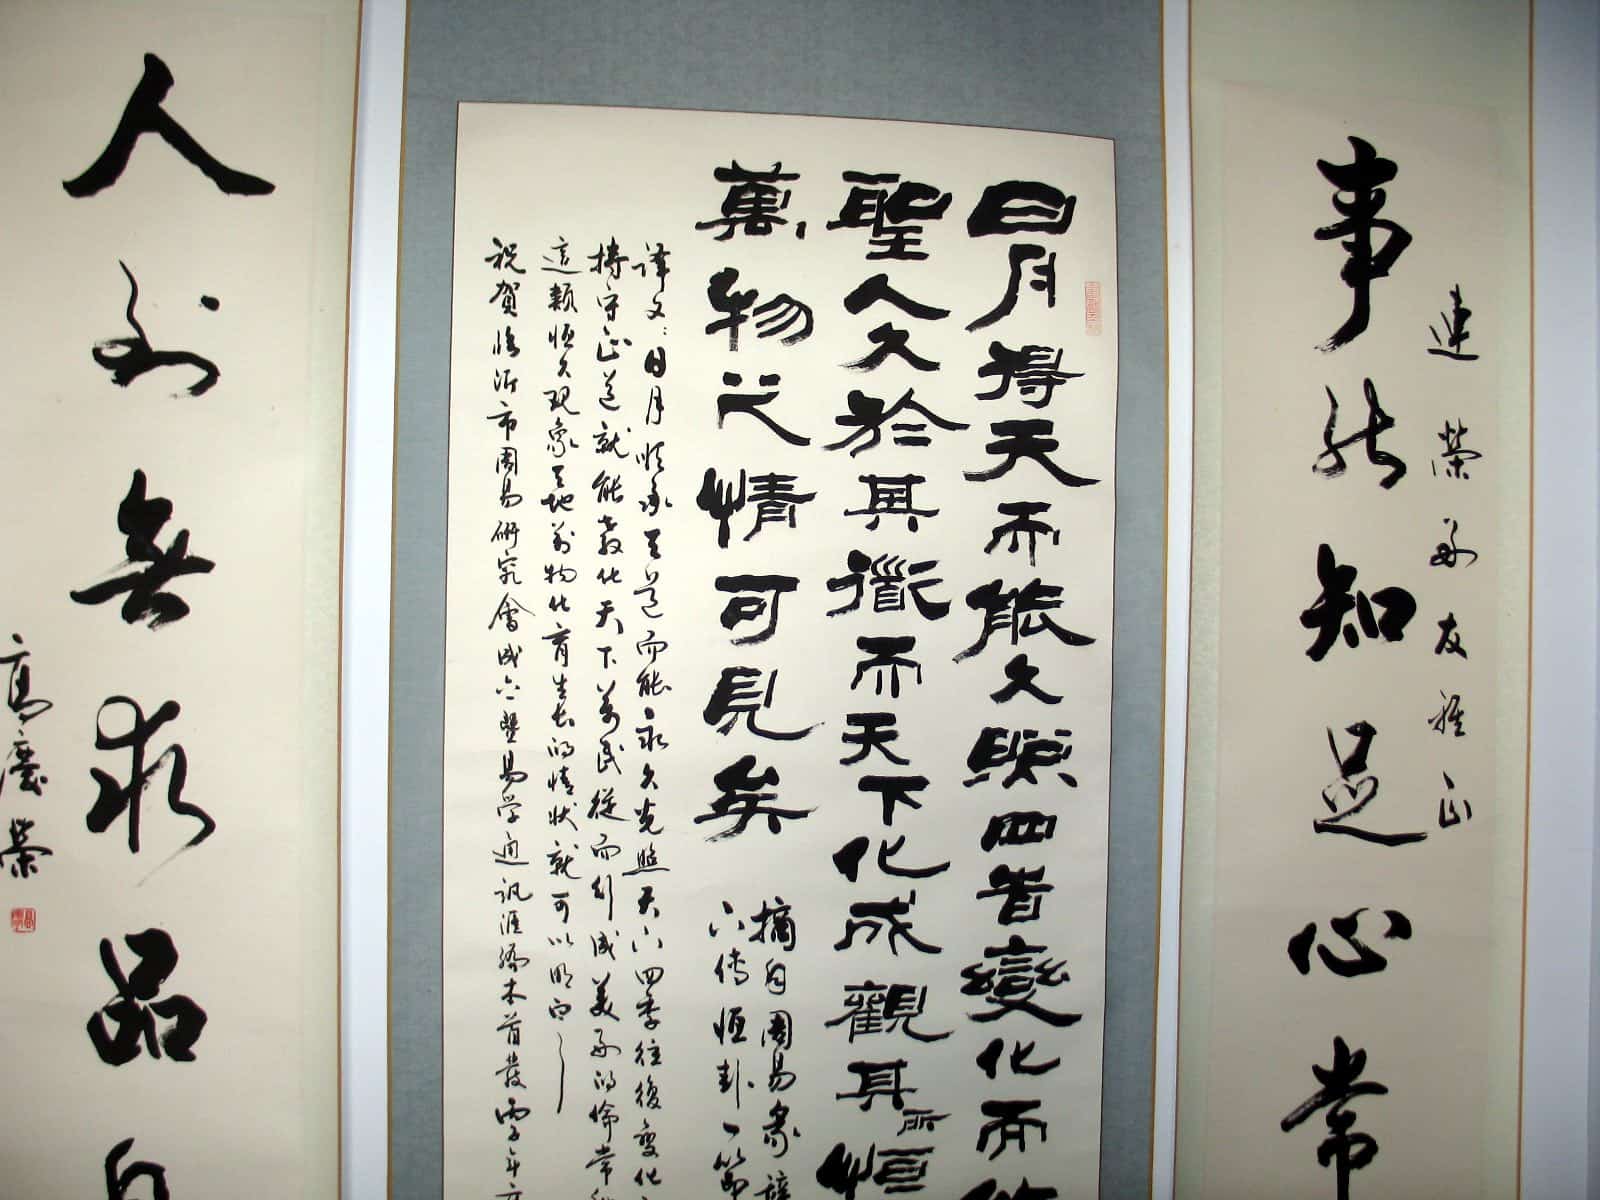 連榮好友雅正
事能知足心常
日月得天而能久照四時變化而能
聖人久於其道而天下化成觀其所恒
萬物之情可見矣
摘自周易彖辭
下傳恒卦一節
譯文:日月順承天道而能永久光照天下四季往復變化
持守正道就能教化天下萬民從而形成美好的倫常
這類恒久現象天地萬物化育生長的情狀就可以明白
祝賀臨沂市周易研究會成立暨易學通訊
人到無求品自
高慶榮